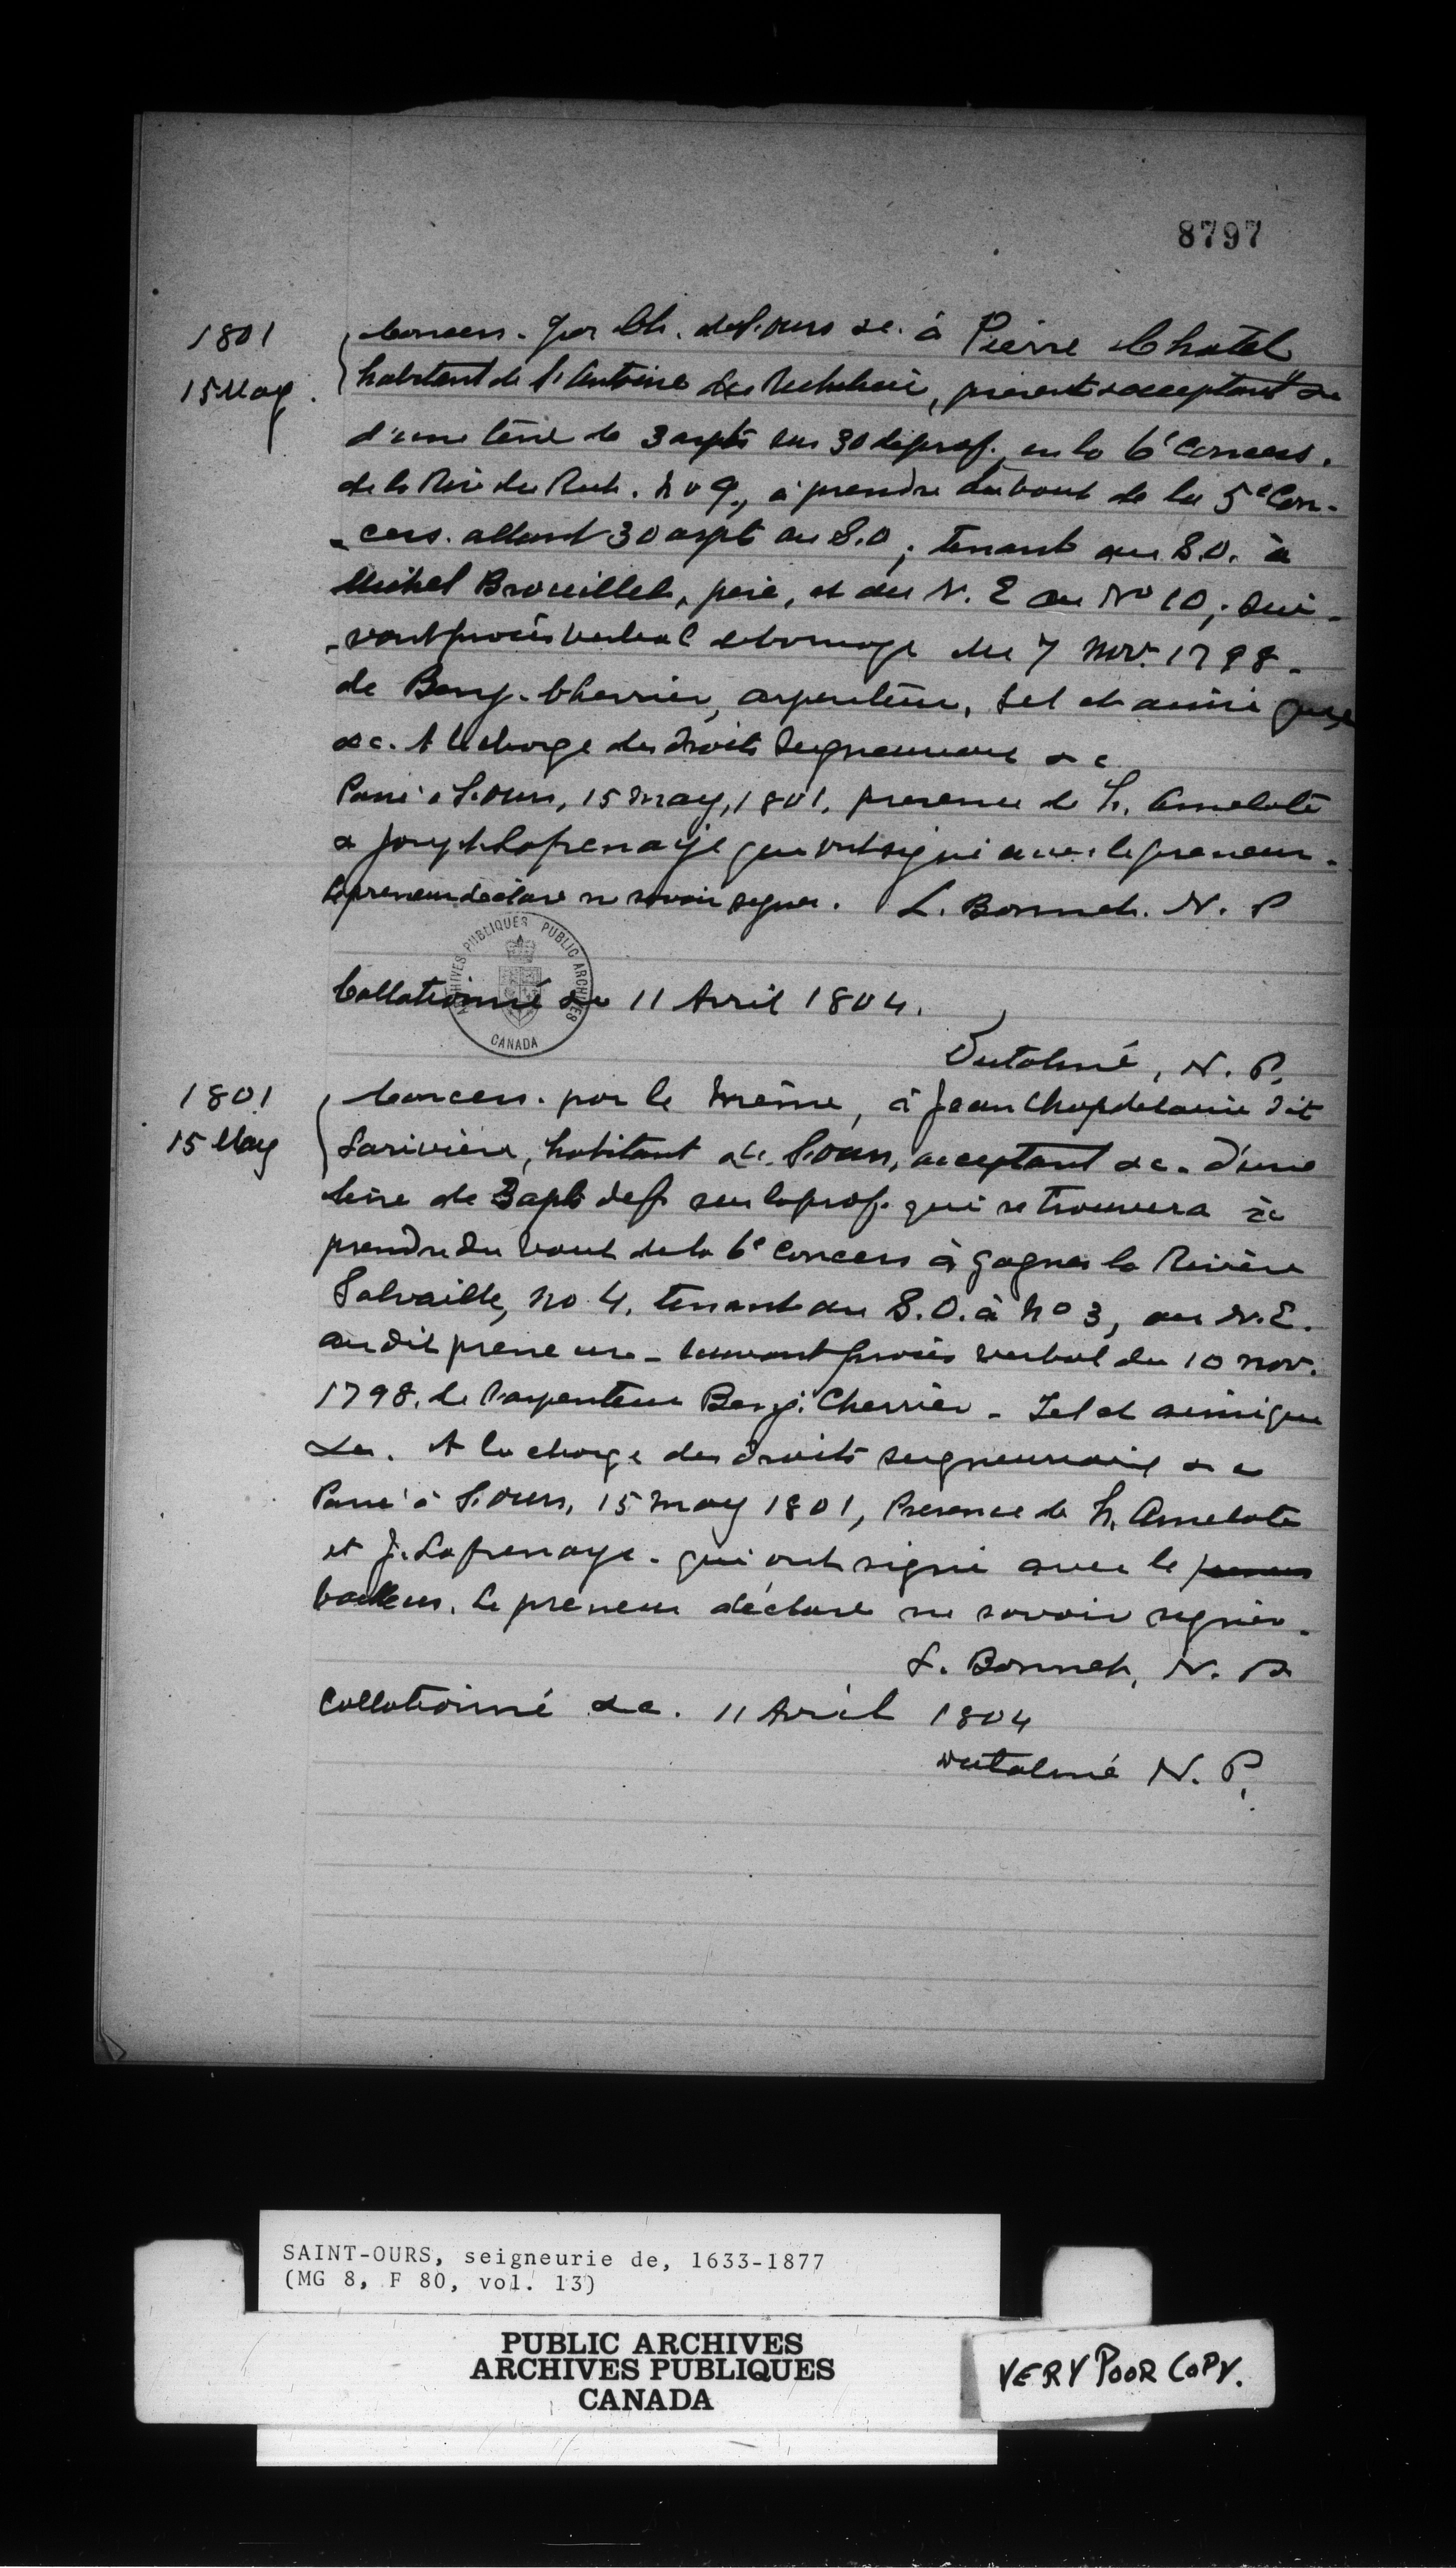 8797
1801
15 May
Concess. par Ch. de S. Ours &c. à Pierre Chatel
habitant de St Antoine de Richelieu, présent & acceptant &c
d'une terre de 3 arpts sur 30 de prof. en la 6e Concess.
de la Riv. du Rich. No 9, à prendre du bout de la 5e Con-
cess. allant 30 arpts au S.O, tenant au S.O. à
Michel Brouillet, père, et du N. E au No 10; sui-
vant procès verbal de bornage du 7 Nov. 1798.
de Benj. Cherrier, arpenteur, tel et ainsi que
&c. A la charge des droits seigneuriaux &c
Passé à S. Ours, 15 May, 1801, presence de h. Amelote
& Joseph Lafrenaye qui ont signé avec le preneur.
Le preneur declare ne savoir signer. L. Bonnet. N. P
Collationné &c 11 Avril 1804.
Dutalmé, N. P.
1801
15 May
Concess. par le même, à Jean Chapdelaine dit
Larivière, habitant de S. Ours, acceptant &c. d'une
terre de 3 apts de f. sur la prof. qui se trouvera à
prendre du bout de la 6e Concess à gagner la Rivière
Salvaille, No 4, tenant au S.O. à No 3, au N.E.
au dit preneur - suivant procès verbal du 10 nov.
1798. de l'arpenteur Benj. Cherrier - Tel et ainsi que
&c. A la charge des droits seigneuriaux &c
Passé à S. Ours, 15 May 1801, Presence de h. Amelote
et J. Lafrenaye. qui ont signé avec le preneur
bailleur. Le preneur déclare ne savoir signer.
L. Bonnet, N. P.
Collationné &c. 11 Avril 1804
Dutalmé N. P.
ARCHIVES PUBLIQUES PUBLIC ARCHIVES
CANADA
SAINT-OURS, seigneurie de, 1633-1877
(MG 8, F 80, vol. 13)
PUBLIC ARCHIVES
ARCHIVES PUBLIQUES
CANADA
VERY POOR COPY.